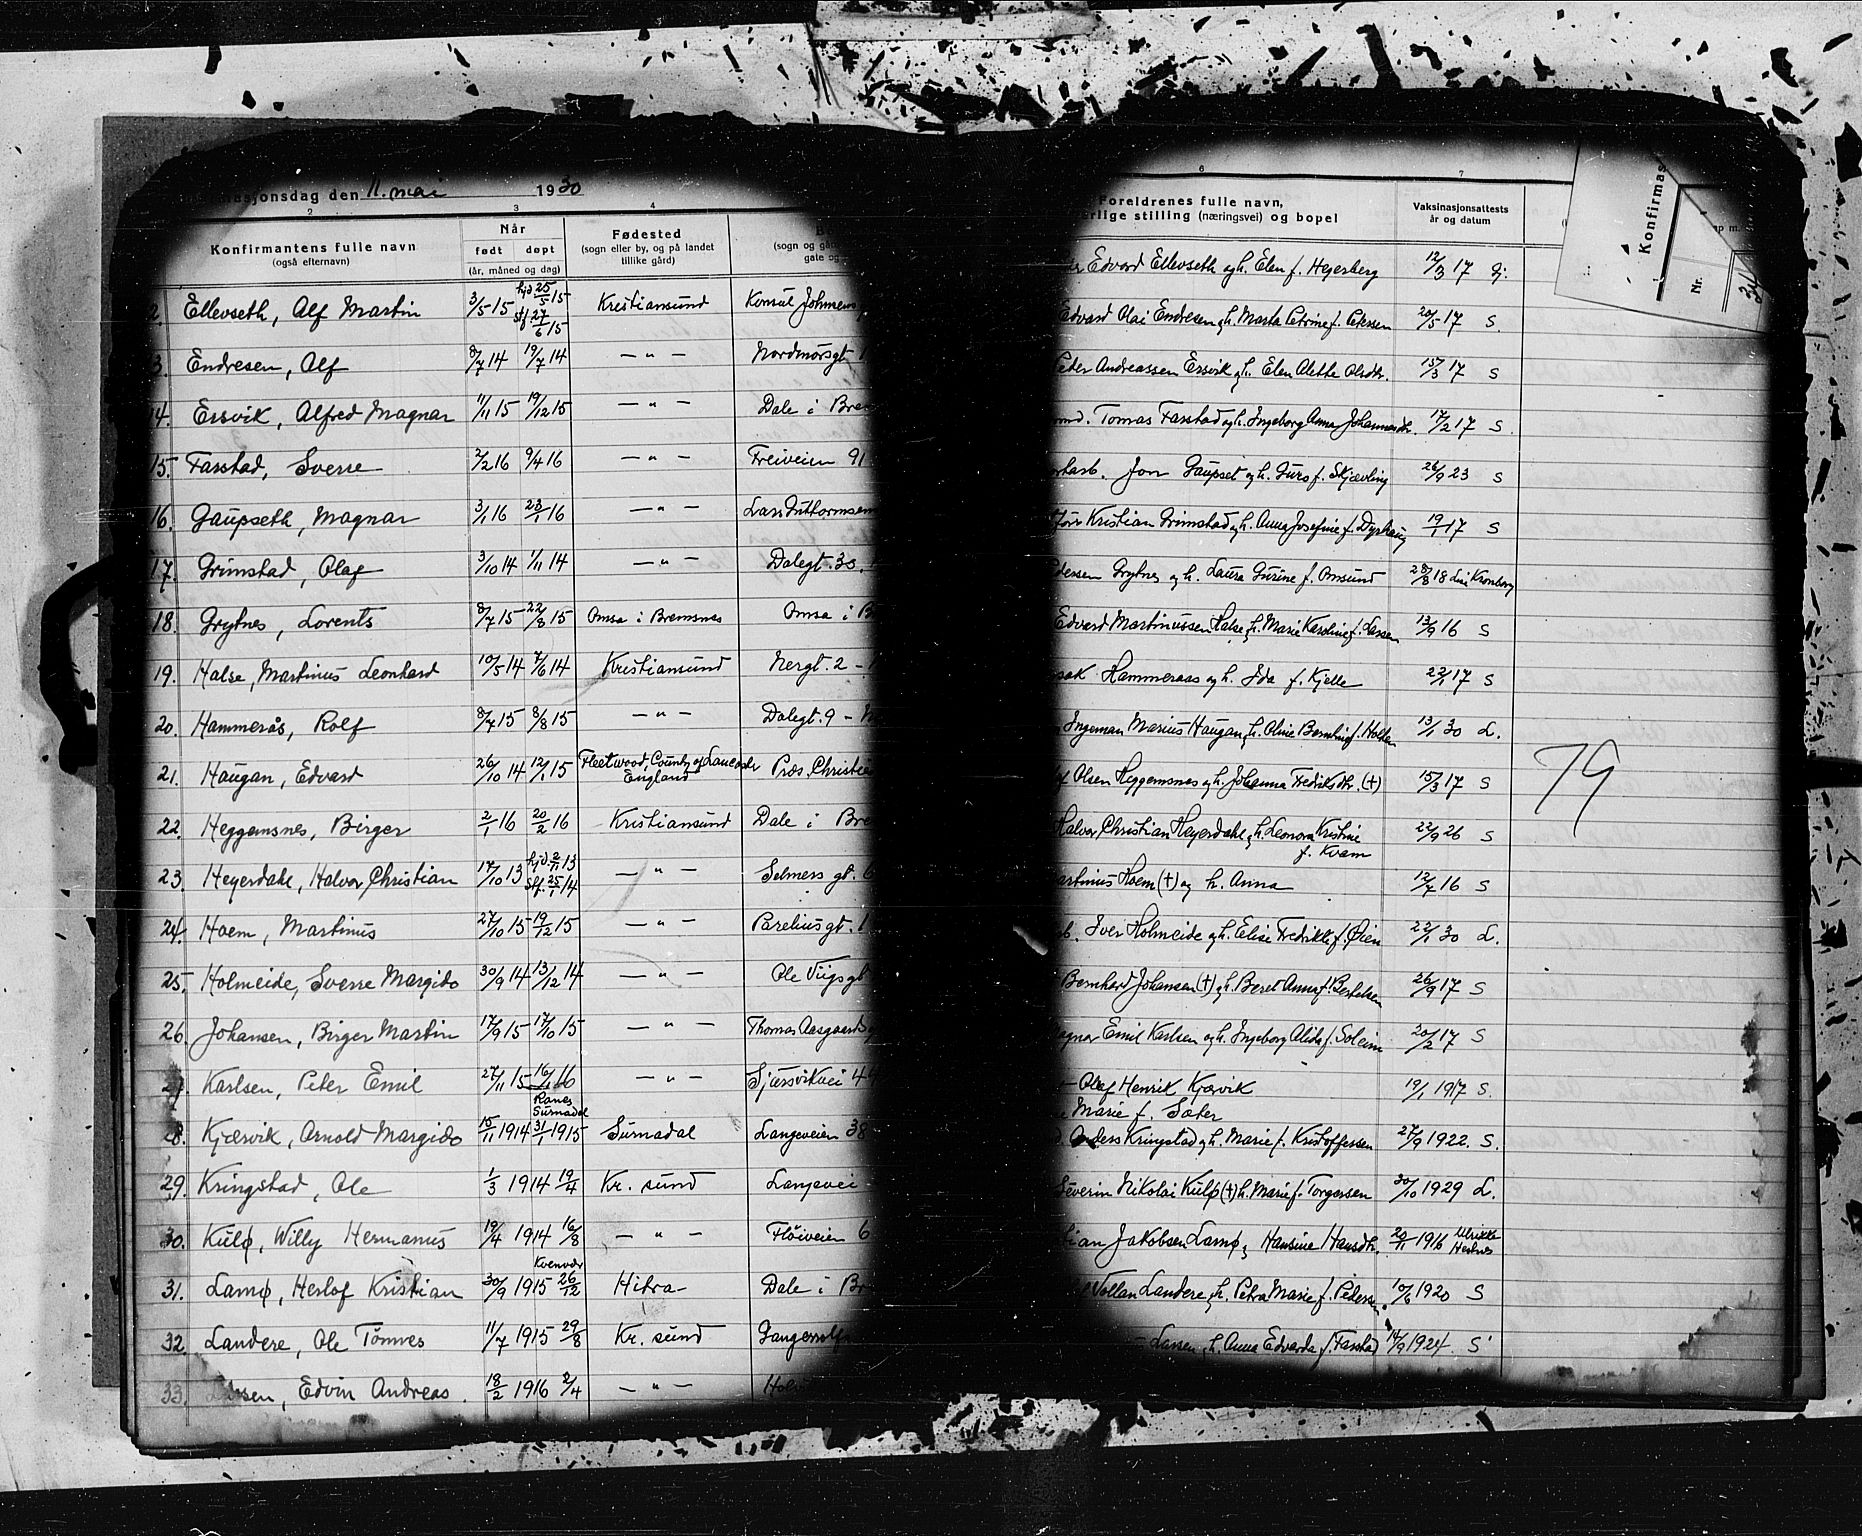 asjonsdag den 11. mai 1930
2 3 4
Konfirmantens fulle navn
(også efternavn)
Når
født døpt
(år, måned og dag)
Fødested
(sogn eller by, og på landet
tillike gård)
(sogn og gå
gate og
2. Ellevseth, Alf Martin 3/5 15 hjd 25/5 15 stf. 27/6 15 Kristiansund Konsul Johnsens
3. Endresen, Alf 8/7 14 19/7 14 — " — Nordmørsgt. 1
14. Ersvik, Alfred Magnar 11/11 15 19/12 15 — " — Dale i Bre
15. Farstad, Sverre 2/2 16 9/4 16 — " — Freiveien 91
16. Gaupseth, Magnar 3/1 16 23/1 16 — " — Lars Guttormsen
17. Grimstad, Olaf 3/10 14 1/11 14 — " — Dalegt. 30.
18. Grytnes, Lorents 8/7 15 22/8 15 Omsa i Bremsnes Omsa i B
19. Halse, Martinus Leonhard 10/5 14 7/6 14 Kristiansund Nergt. 2 –
20. Hammerås, Rolf 8/7 15 8/8 15 — " — Dalegt. 9 –
21. Haugan, Edvard 26/10 14 12/1 15 Fleetwood, County of Lancaster
England Præs. Christie
22. Heggemsnes, Birger 2/1 16 20/2 16 Kristiansund Dale i Bre
23. Heyerdahl, Halvor Christian 17/10 13 hjd. 2/11 13 stf. 25/1 14 — " — Selmers gt. 6
24. Hoem, Martinus 27/10 15 19/12 15 — " — Pareliusgt. 1
25. Holmeide, Sverre Margido 30/9 14 13/12 14 — " — Ole Vigsgt
26. Johansen, Birger Martin 17/9 15 17/10 15 — " — Thomas Aasgaards
27. Karlsen, Peter Emil 27/11 15 16/1 16 — " — Sjursvikvei 44
Ranes
Surnadal
28. Kjærvik, Arnold Margido 15/11 1914 31/1 1915 Surnadal Langveien 38
29. Kringstad, Ole 1/3 1914 19/4 Kr. sund Langvei
30. Kulø, Willy Hermanus 19/4 1914 16/8 — " — Fløiveien 6
Kvenvær
31. Lamø, Herlof Kristian 30/9 1915 26/12 Hitra Dale i Br
32. Landere, Ole Tønnes 11/7 1915 29/8 Kr. sund Gangerrolf
33. sen, Edvin Andreas. 18/2 1916 2/4 — " — Hol
6 7
Foreldrenes fulle navn,
erlige stilling (næringsvei) og bopel
Vaksinasjonsattests
år og datum
Edvard Ellevseth og h. Elen f. Hejerberg 12/3 17 G.
Edvard Olai Endresen og h. Marta Petrine f. Petersen 20/5 17 S.
Peter Andreassen Ersvik og h. Elen Alette Olsdtr. 15/3 17 S
Tomas Farstad og h. Ingeborg Anna Johannesdtr. 17/2 17 S.
Jon Gaupset og h. Guro f. Skjævling 26/9 23 S
Kristian Grimstad og h. Anna Josefine f. Dyrhaug 19/1 17 S
dersen Grytnes og h. Laura Gurine f. Omsund 28/8 18 Lin Kronborg
Edvard Martinussen Halse og h. Marie Karoline f. Larsen 13/9 16 S
sak Hammeraas og h. Ida f. Kjelle 22/1 17 S
Ingeman Marius Haugan og h. Oline Berntine f. Holten 13/1 30 L.
Olsen Heggemsnes og h. Johanna Fredriksdtr. (†) 15/3 17 S
Halvor Christian Heyerdahl og h. Leonora Kristine
f. Kvam 22/9 26 S
artinus Hoem (†) og h. Anna 12/7 16 S
b. Iver Holmeide og h. Elise Fredrikke f. Øien 22/1 30 L.
Bernhard Johansen (†) og h. Beret Anna f. Bertelsen 26/9 17 S
agnar Emil Karlsen og h. Ingeborg Alida f. Soleim 20/2 17 S
Olaf Henrik Kjærvik
Marie f. Sæter 19/1 1917 S.
Anders Kringstad og h. Marie f. Kristoffersen 27/9 1922. S.
Severin Nikolai Kulø (†) h. Marie f. Torgersen 30/10 1929 L.
tian Jakobsen Lamø og Hansine Hansdtr. 20/11 1916 Ulrikke
Hestnes
Vollan Landere og h. Petra Marie f. Pedersen. 10/6 1920 S
Larsen og h. Anna Edvarda f. Farstad 14/9 1924. S
79
Konfirmas
Nr.